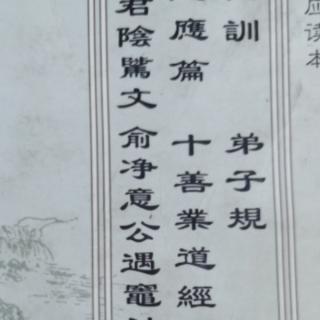 应读本
訓 弟子規
應篇 十善業道經
君陰騭文 俞净意公遇竈